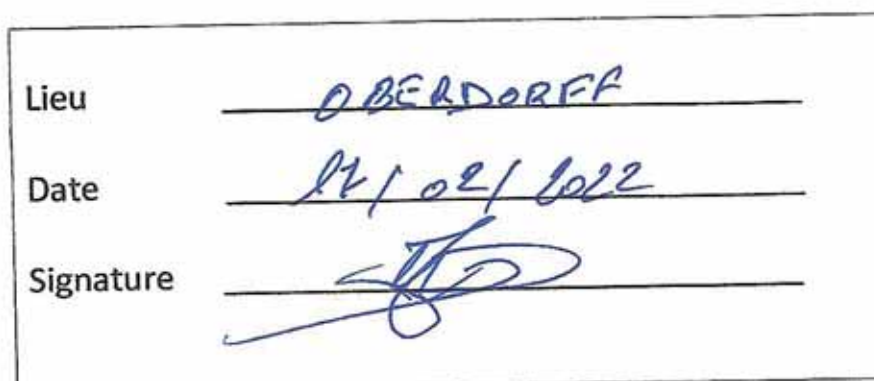 Lieu OBERDORFF
Date 17/02/2022
Signature